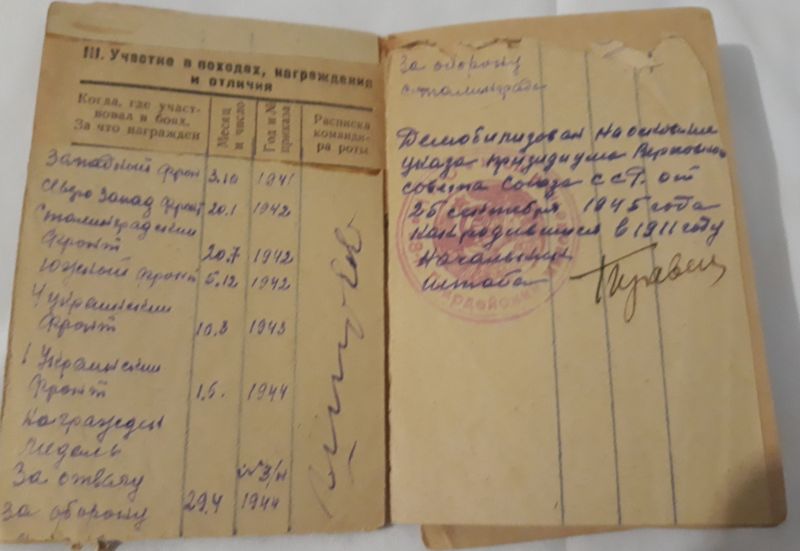 III. Участие в походах, награждения
и отличия
Когда, где участ-
вовал в боях.
За что награжден
Месяц
и число
Год и №
приказа
Расписка
команди-
ра роты
Западный фрон 3.10 1941
Северо Запад фронт 20.1 1942
Сталинградский
Фронт 20.7 1942
Южный фронт 5.12 1942
4 украинский
Фронт 10.3 1943
1 Украинский
Фронт 1.5. 1944
Награжден
медаль
За отвагу № 3/н
За оборону 29.4 1944
За оборону
Сталинграда
Демобилизован на основание
указа президиума Верховного
совета Союза ССР. от
25 сентября 1945 года
как родившийся в 1911 году
Начальник
штаба